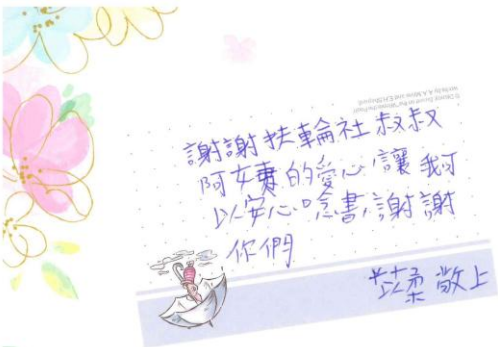 謝謝扶輪社叔叔
阿姨的愛心讓我可
以安心唸書,謝謝
你們
苡柔 敬上